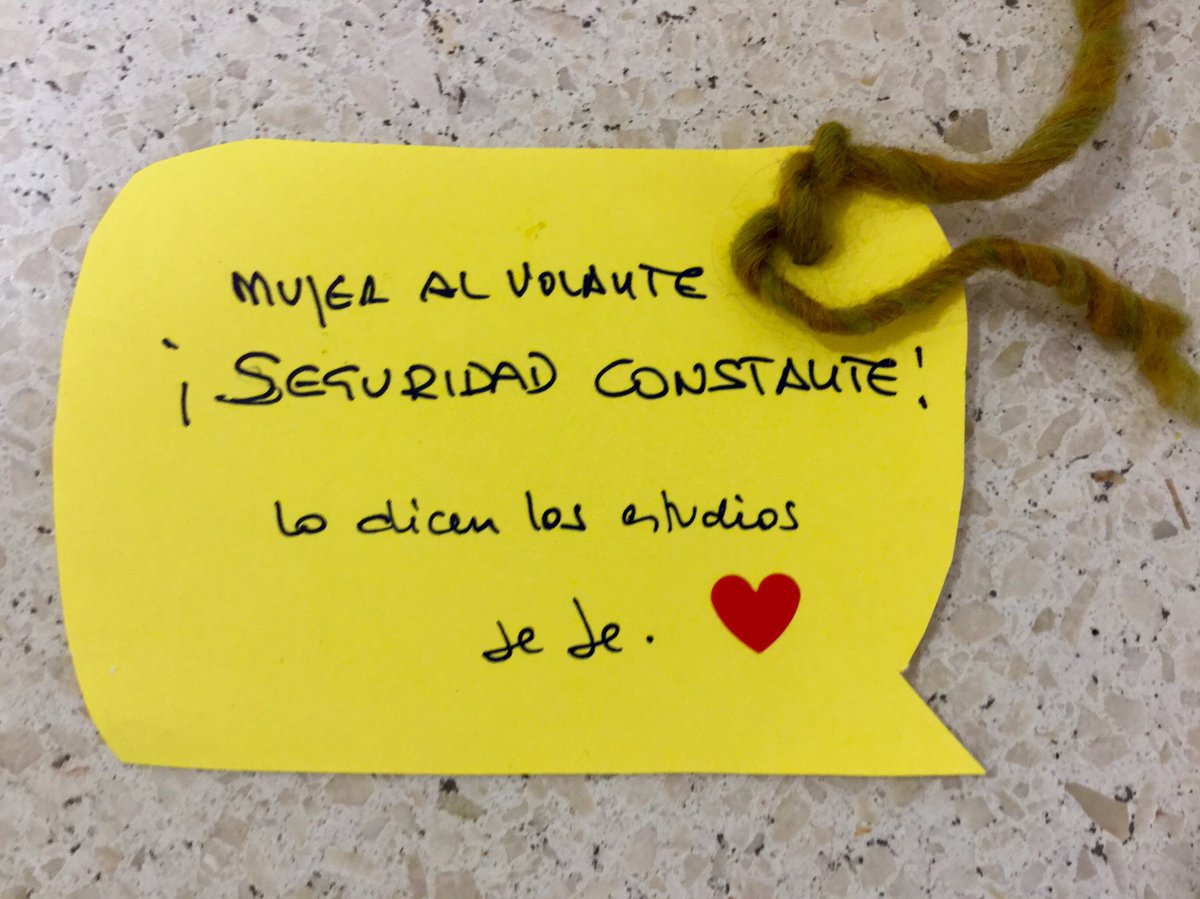 MUJER AL VOLANTE
¡SEGURIDAD CONSTANTE!
Lo dicen los estudios
Je Je.